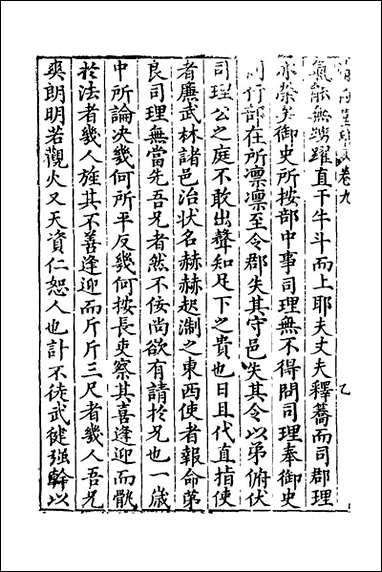 卷九 乙
氣能無躍直干牛斗而上耶夫丈夫釋蕎而司郡理
亦榮矣御史所按部中事司理無不得問司理奉御史
行部在所凛凛至令郡失其守邑失其令以弟俯伏
司理公之庭不敢出聲知足下之貴也日且代直指使
者廉武林諸邑治状名赫赫起淛之東西使者報命第
良司理無當先吾兄者然不佞尚欲有請於兄也一歲
中所論决幾何所平反幾何按長吏察其喜逢迎而骫
於法者幾人旌其不善逢迎而斤斤三尺者幾人吾兄
爽朗明若觀火又天資仁恕人也計不徒武健强幹以